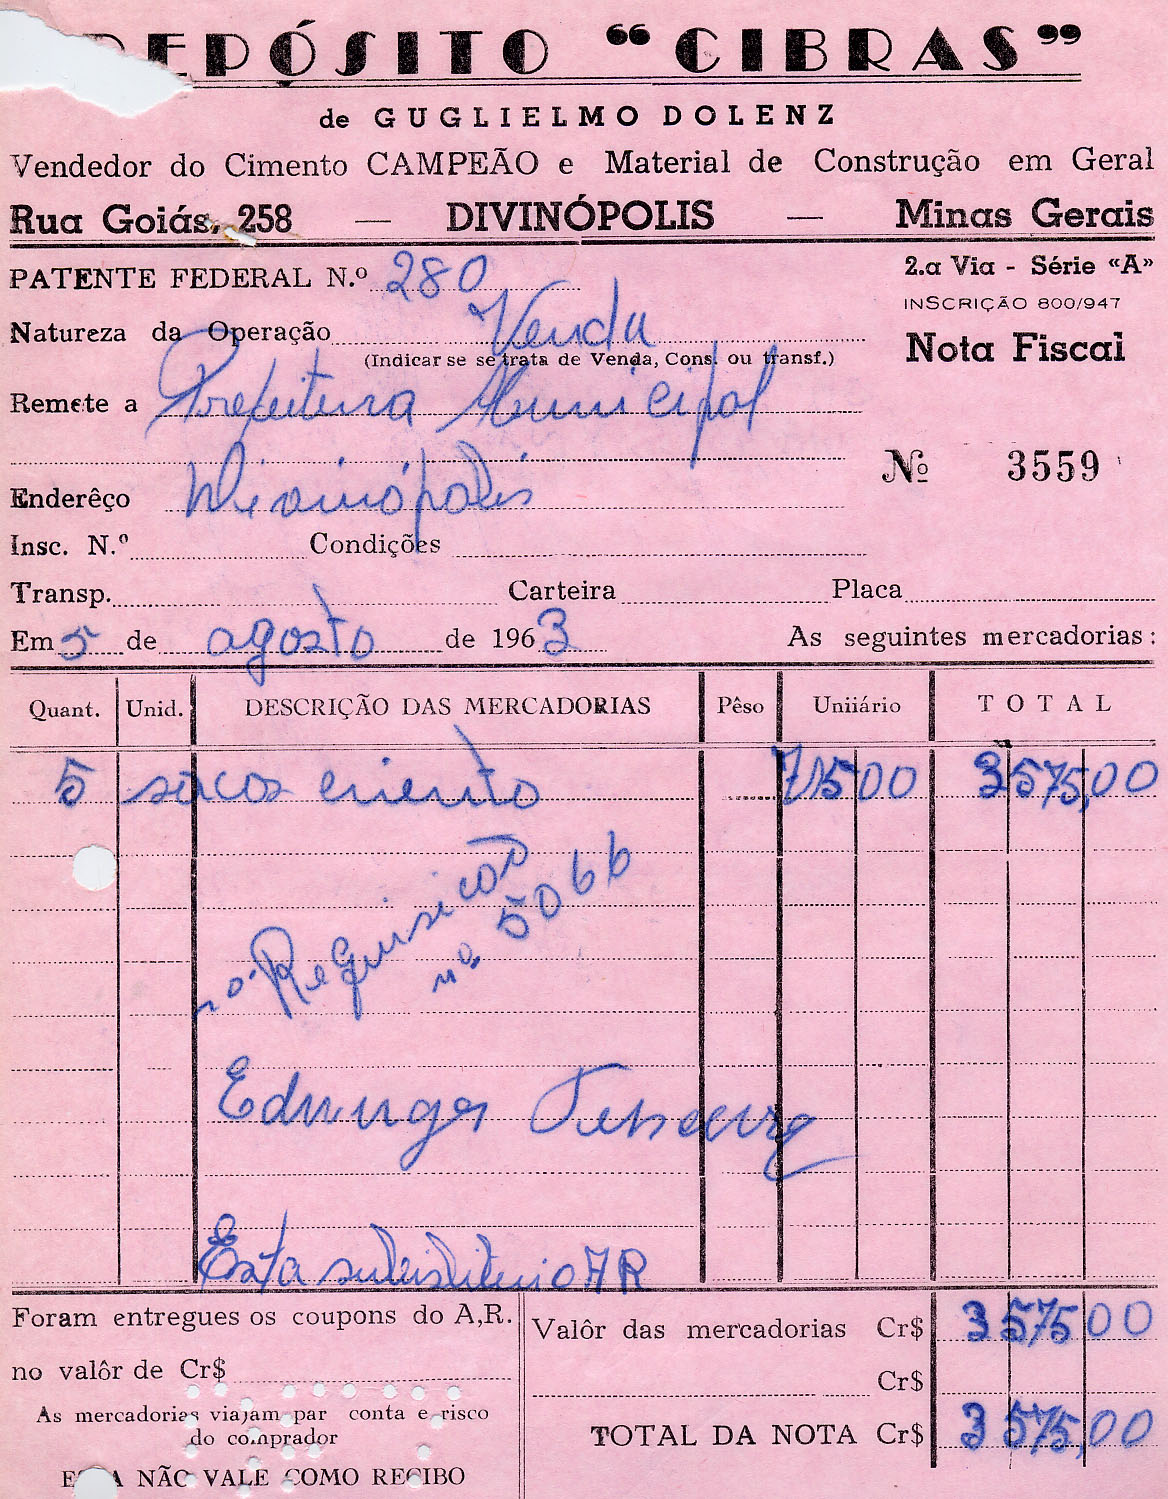 DEPÓSITO “CIBRAS”
de GUGLIELMO DOLENZ
Vendedor do Cimento CAMPEÃO e Material de Construção em Geral
Rua Goiás, 258 — DIVINÓPOLIS — Minas Gerais
PATENTE FEDERAL N.º 280
2.a Via - Série «A»
INSCRIÇÃO 800/947
Nota Fiscal
Natureza da Operação Venda
(Indicar se se trata de Venda, Cons. ou transf.)
Remete a Prefeitura Municipal
Nº 3559
Enderêço Divinópolis
Insc. N.º Condições
Transp. Carteira Placa
Em 5 de agosto de 1963 As seguintes mercadorias:
Quant. Unid. DESCRIÇÃO DAS MERCADORIAS Pêso Uniiário TOTAL
5 sacos cimento 71500 3575,00
Requisicão
nº 5066
Esta substituio AR
Foram entregues os coupons do A,R.
no valôr de Cr$
As mercadorias viajam par conta e risco
do comprador
ESTA NÃO VALE COMO RECIBO
Valôr das mercadorias Cr$ 357500
Cr$
TOTAL DA NOTA Cr$ 3575,00